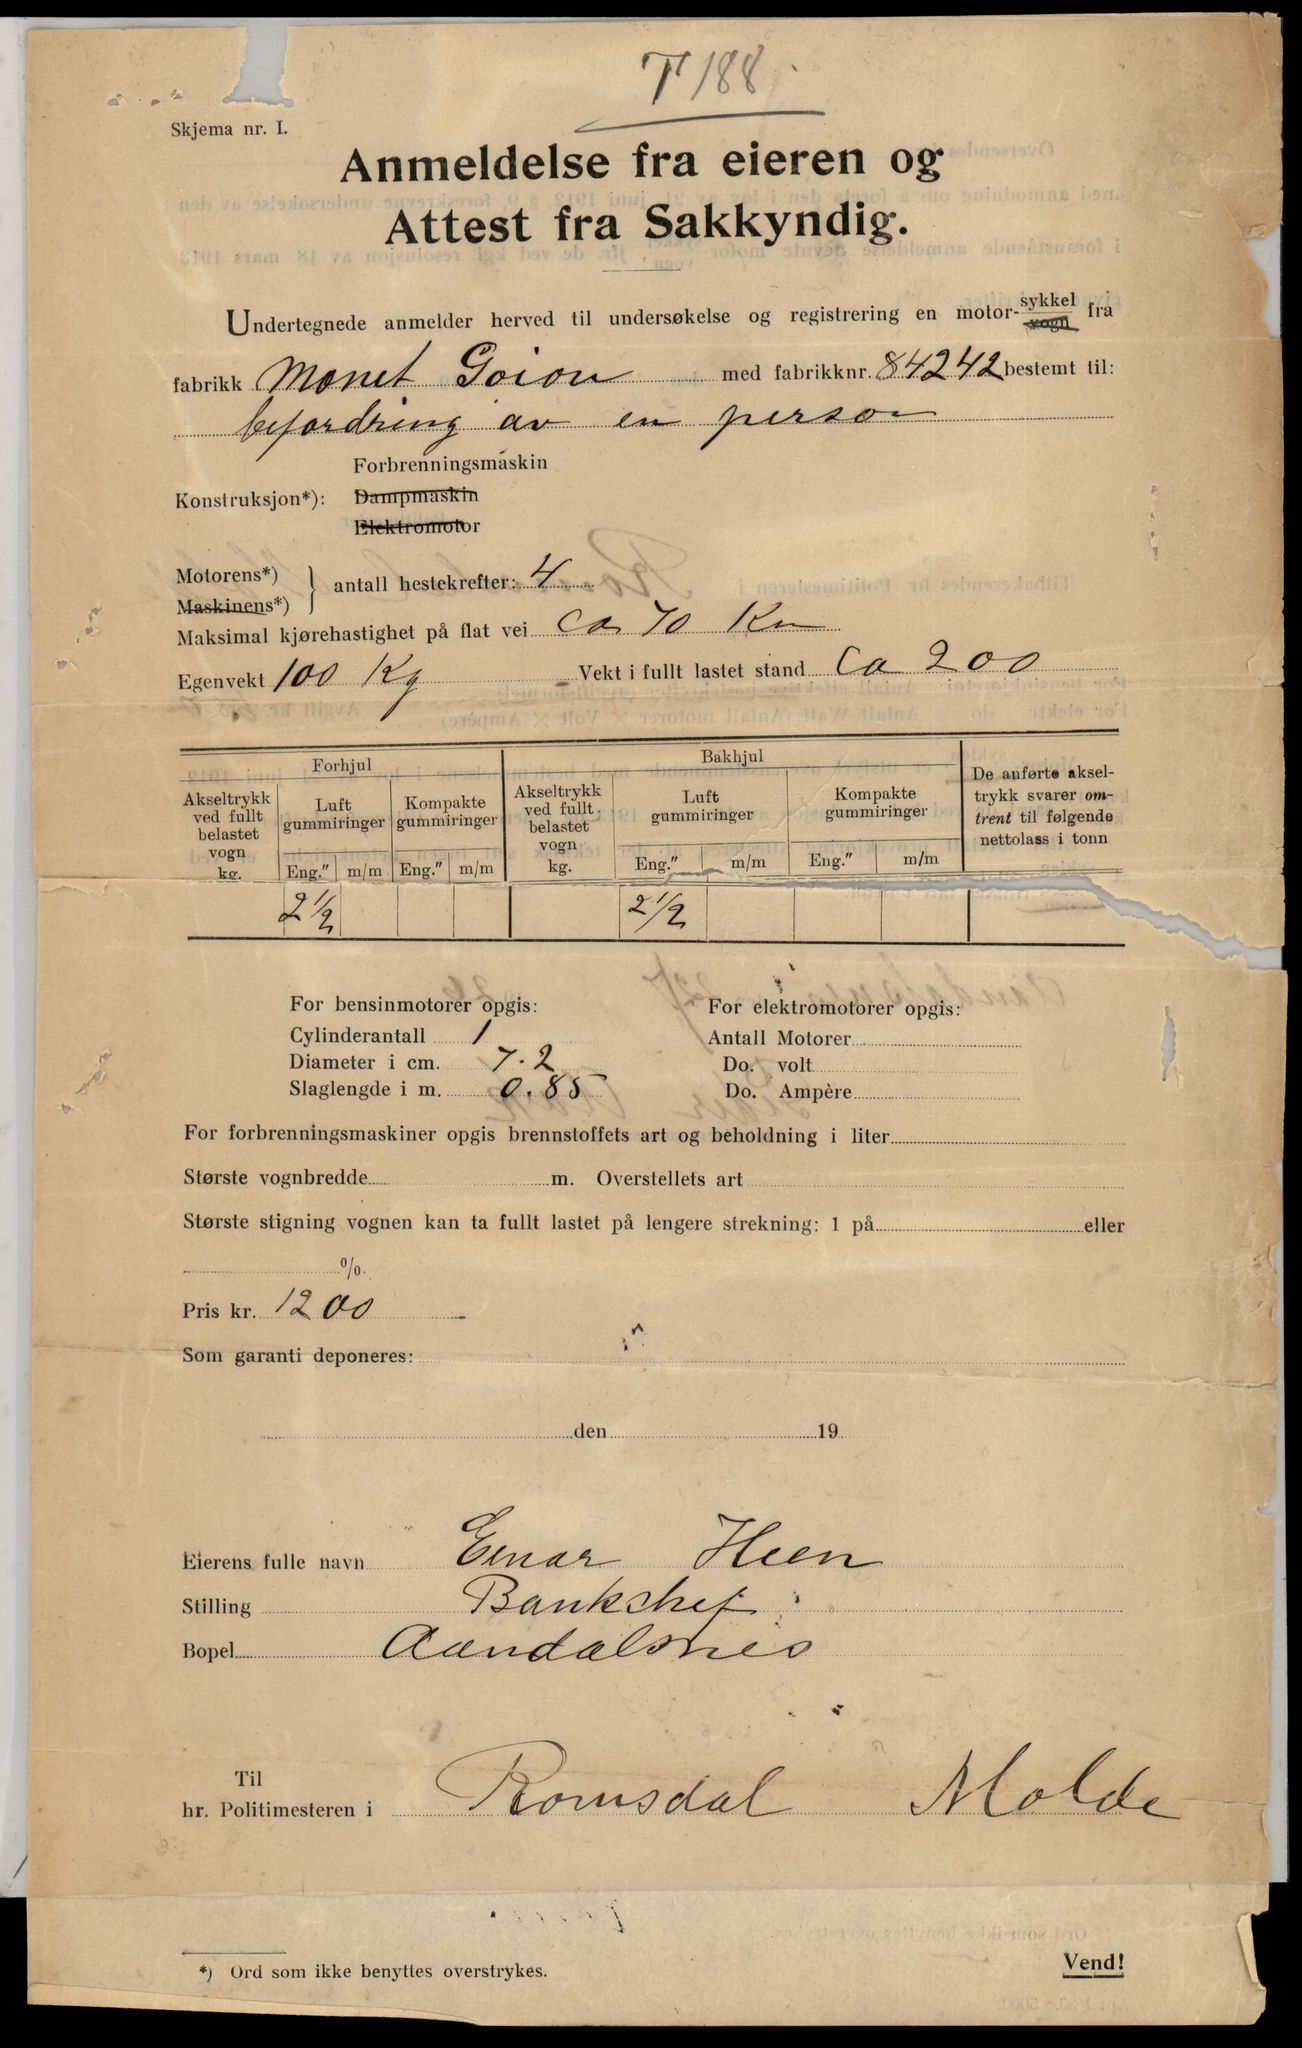 T 188
Skjema nr. I.
Anmeldelse fra eieren og
Attest fra Sakkyndig.
Undertegnede anmelder herved til undersøkelse og registrering en motor-sykkel vogn fra
fabrikk Monet Goion med fabrikknr. 84242 bestemt til:
befordring av en person
Forbrenningsmaskin
Konstruksjon*): Dampmaskin
Elektromotor
Motorens*)
Maskinens*) } antall hestekrefter: 4
Maksimal kjørehastighet på flat vei ca 70 Km
Egenvekt 100 Kg Vekt i fullt lastet stand ca 200
Forhjul Bakhjul
Akseltrykk ved fullt belastet vogn kg. Luft gummiringer Kompakte gummiringer Akseltrykk ved fullt belastet vogn kg. Luft gummiringer Kompakte gummiringer De anførte akseltrykk svarer omtrent til følgende nettolass i tonn
Eng." m/m Eng." m/m Eng." m/m Eng." m/m
2 1/2 2 1/2
For bensinmotorer opgis: For elektromotorer opgis:
Cylinderantall 1 Antall Motorer
Diameter i cm. 7.2 Do. volt
Slaglengde i m. 0.85 Do. Ampère
For forbrenningsmaskiner opgis brennstoffets art og beholdning i liter
Største vognbredde m. Overstellets art
Største stigning vognen kan ta fullt lastet på lengere strekning: 1 på eller
%.
Pris kr. 1200
Som garanti deponeres:
den 19
Eierens fulle navn Einar Heen
Stilling Bankchef
Bopel Aandalsnes
Til
hr. Politimesteren i Romsdal Molde
*) Ord som ikke benyttes overstrykes.
Vend!